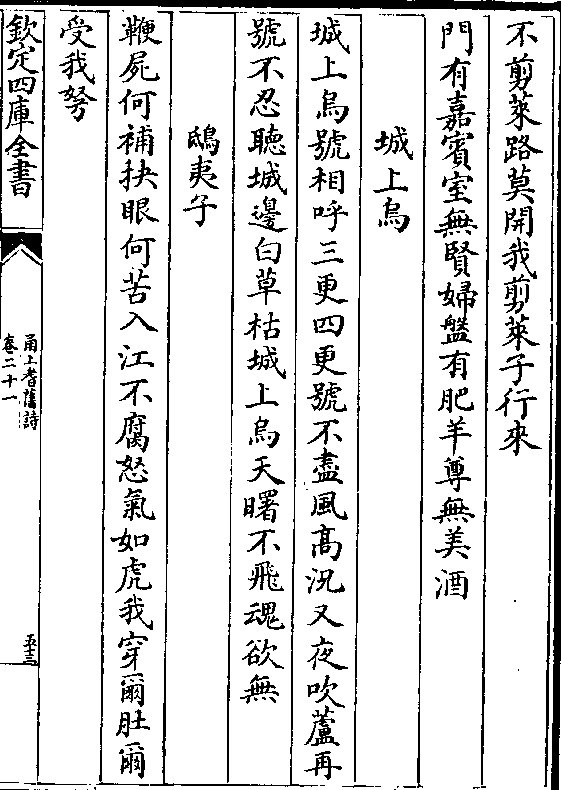 不剪萊路莫開我剪萊子行來
門有嘉賓室無賢婦盤有肥羊尊無美酒
城上烏
城上烏號相呼三更四更號不盡風髙況又夜吹蘆再
號不忍聽城邊白草枯城上烏天曙不飛魂欲無
鴟夷子
鞭屍何補抉眼何苦入江不腐怒氣如虎我穿爾肚爾
受我弩
欽定四庫全書
甬上耆舊詩
卷二十一
五十三